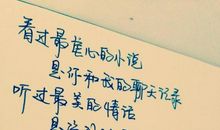 看过最虐心的小说
是你和我的聊天记录
听过最美的情话